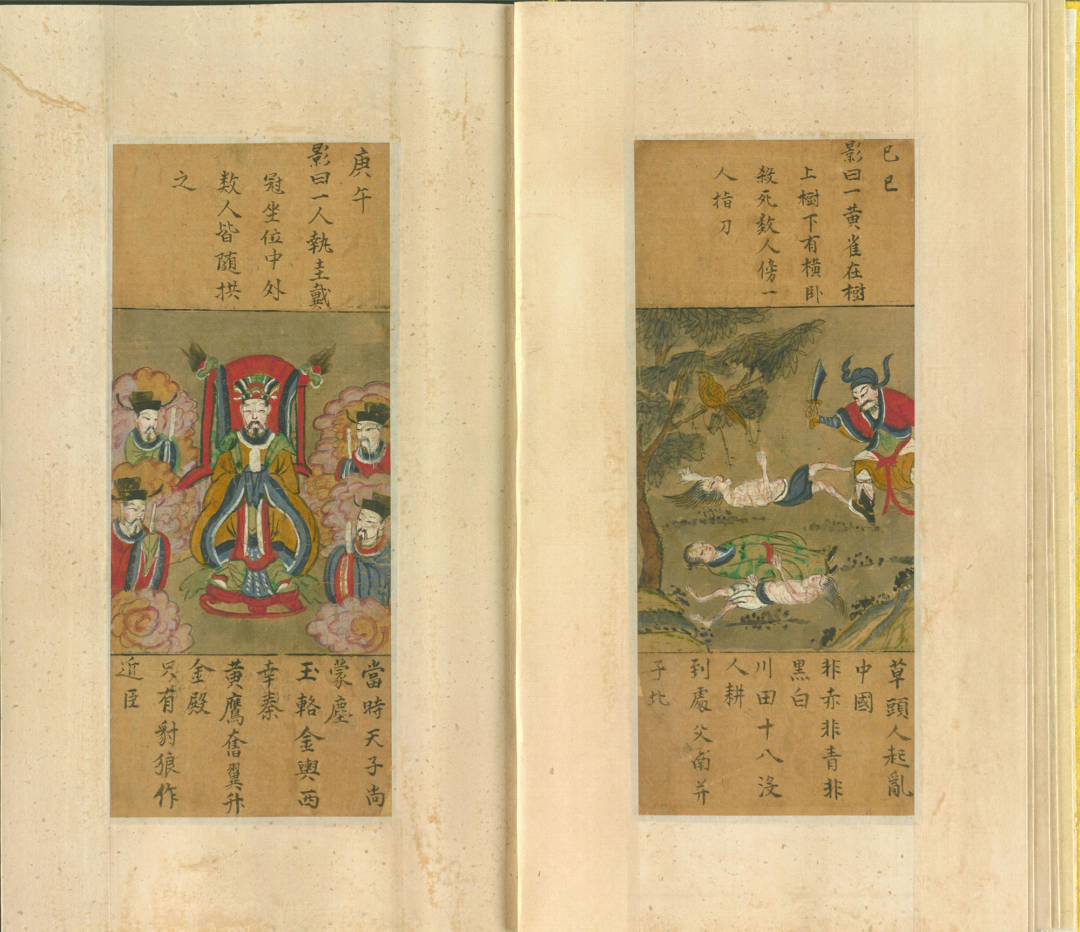 己巳
影曰一黃雀在樹
上樹下有橫卧
殺死数人傍一
人指刀
草頭人起亂
中國
非赤非青非
黑白
川田十八沒
人耕
到處父南并
子北
庚午
影曰一人執圭戴
冠坐位中外
数人皆随拱
之
當時天子尚
蒙塵
玉輅金輿西
幸秦
黃鷹奮翼升
金殿
只有豺狼作
近臣